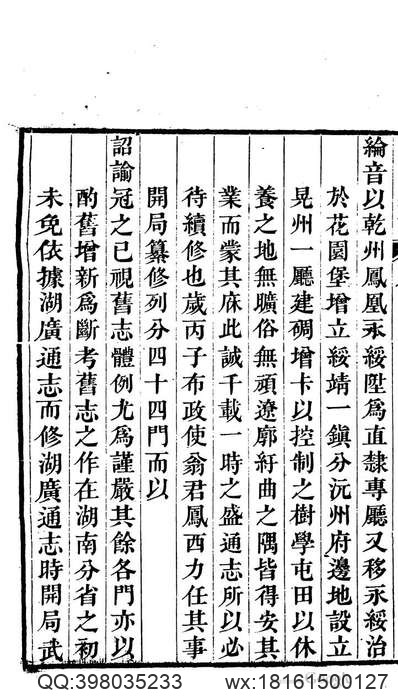 綸音以乾州鳳凰永綏陞爲直隸專廳又移永綏治
於花園堡增立綏靖一鎮分沅州府邊地設立
晃州一廳建碉增卡以控制之樹學屯田以休
養之地無曠俗無頑遼廓紆曲之隅皆得安其
業而蒙其庥此誠千載一時之盛通志所以必
待續修也歲丙子布政使翁君鳳西力任其事
開局纂修列分四十四門而以
詔諭冠之已視舊志體例尤爲謹嚴其餘各門亦以
酌舊增新爲斷考舊志之作在湖南分省之初
未免依據湖廣通志而修湖廣通志時開局武
QQ:398035233 wx:18161500127